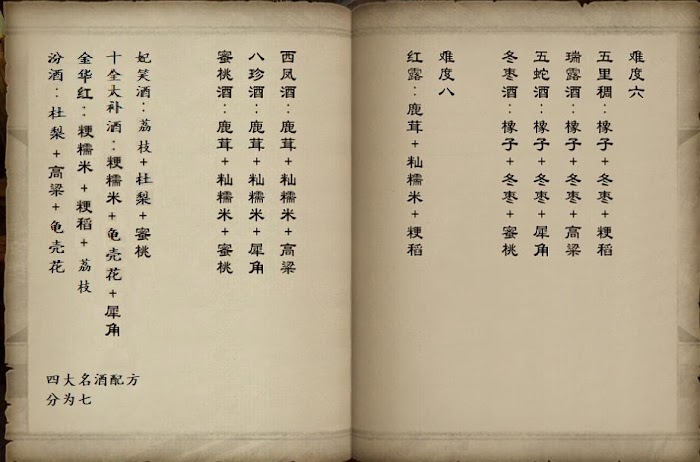 难度六
五里稠：橡子+冬枣+粳稻
瑞露酒：橡子+冬枣+高粱
五蛇酒：橡子+冬枣+犀角
冬枣酒：橡子+冬枣+蜜桃
难度八
红露：鹿茸+籼糯米+粳稻
西凤酒：鹿茸+籼糯米+高粱
八珍酒：鹿茸+籼糯米+犀角
蜜桃酒：鹿茸+籼糯米+蜜桃
妃笑酒：荔枝+杜梨+蜜桃
十全大补酒：粳糯米+龟壳花+犀角
金华红：粳糯米+粳稻+荔枝
汾酒：杜梨+高粱+龟壳花
四大名酒配方
分为七